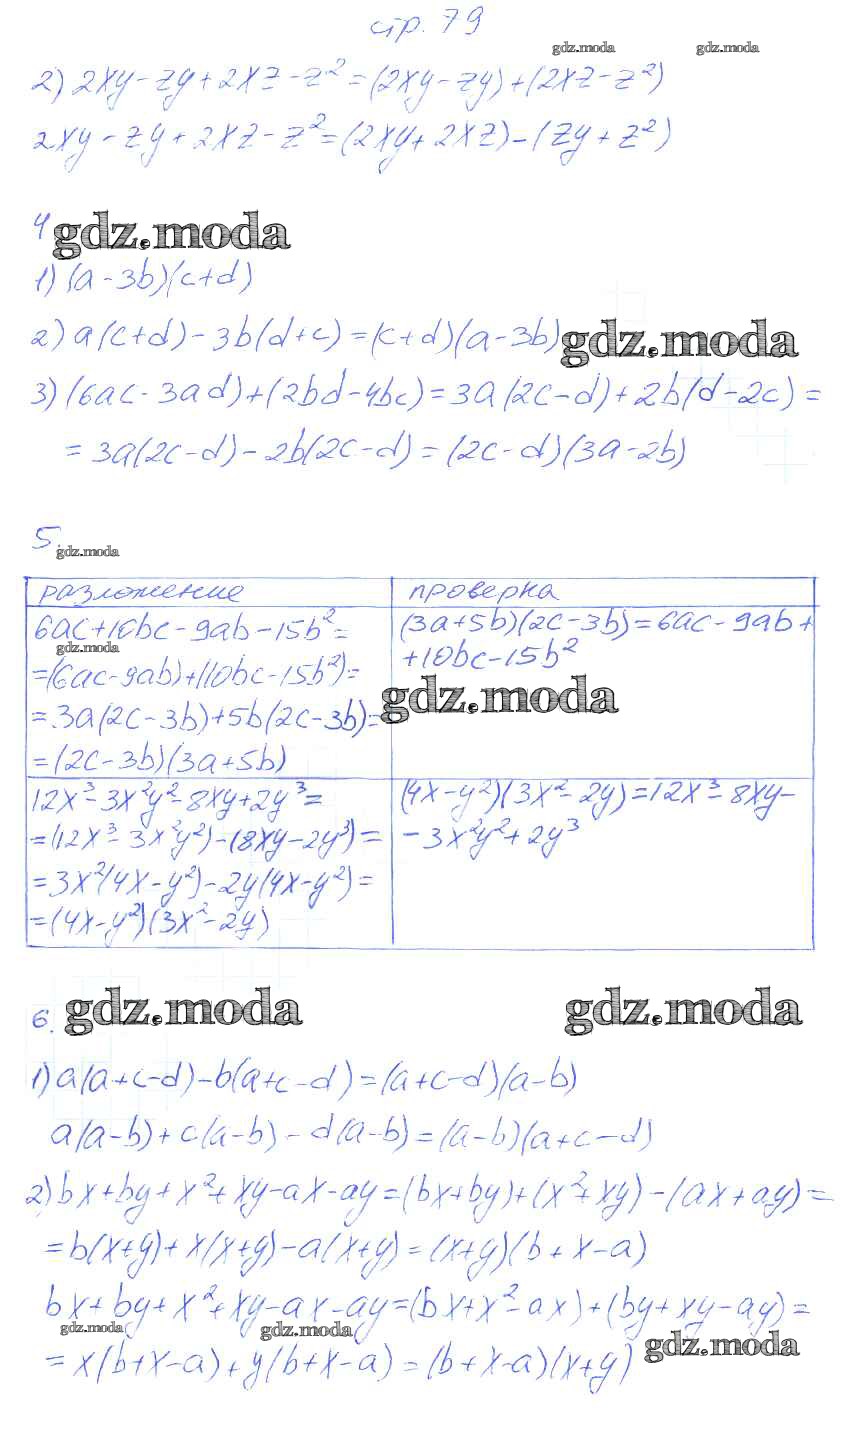 стр. 79
gdz.moda gdz.moda
2) 2xy-zy+2xz-z²=(2xy-zy)+(2xz-z²)
2xy-zy+2xz-z²=(2xy+2xz)-(zy+z²)
4 gdz.moda
1) (a-3b)(c+d)
2) a(c+d)-3b(d+c)=(c+d)(a-3b) gdz.moda
3) (6ac-3ad)+(2bd-4bc)=3a(2c-d)+2b(d-2c)=
=3a(2c-d)-2b(2c-d)=(2c-d)(3a-2b)
5. gdz.moda
разложение
6ac+10bc-9ab-15b²=
gdz.moda
=(6ac-9ab)+(10bc-15b²)=
=3a(2c-3b)+5b(2c-3b)=
=(2c-3b)(3a+5b)
проверка
(3a+5b)(2c-3b)=6ac-9ab+
+10bc-15b²
gdz.moda
12x³-3x²y²-8xy+2y³=
=(12x³-3x²y²)-(8xy-2y³)=
=3x²(4x-y²)-2y(4x-y²)=
=(4x-y²)(3x²-2y)
(4x-y²)(3x²-2y)=12x³-8xy-
-3x²y²+2y³
6. gdz.moda gdz.moda
1) a(a+c-d)-b(a+c-d)=(a+c-d)(a-b)
a(a-b)+c(a-b)-d(a-b)=(a-b)(a+c-d)
2) bx+by+x²+xy-ax-ay=(bx+by)+(x²+xy)-(ax+ay)=
=b(x+y)+x(x+y)-a(x+y)=(x+y)(b+x-a)
bx+by+x²+xy-ax-ay=(bx+x²-ax)+(by+xy-ay)=
gdz.moda gdz.moda gdz.moda
=x(b+x-a)+y(b+x-a)=(b+x-a)(x+y)